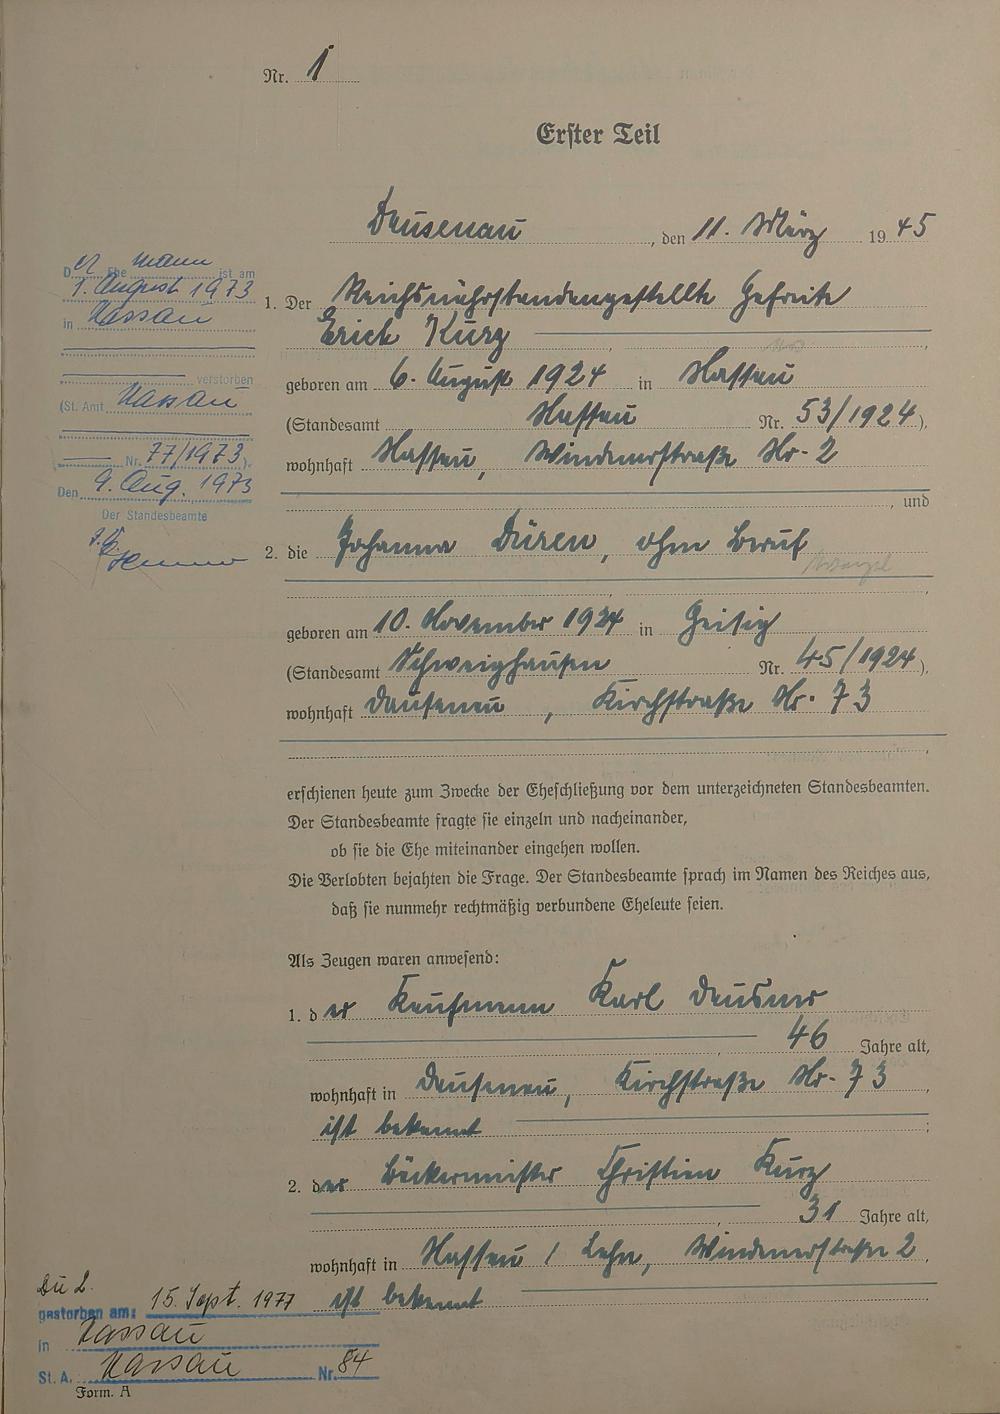 Nr. 1
Erster Teil
Dausenau, den 11. März 1945
1. Der Reichsnährstandangestellte Gefreite
Erich Kurz,
geboren am 6. August 1924 in Nassau
(Standesamt Nassau Nr. 53/1924),
wohnhaft Nassau, Windenerstraße Nr. 2
, und
2. die Johanna Düren, ohne Beruf
,
geboren am 10. November 1924 in Geisig
(Standesamt Schweighausen Nr. 45/1924),
wohnhaft Dausenau, Kirchstraße Nr. 73
,
erschienen heute zum Zwecke der Eheschließung vor dem unterzeichneten Standesbeamten.
Der Standesbeamte fragte sie einzeln und nacheinander,
ob sie die Ehe miteinander eingehen wollen.
Die Verlobten bejahten die Frage. Der Standesbeamte sprach im Namen des Reiches aus,
daß sie nunmehr rechtmäßig verbundene Eheleute seien.
Als Zeugen waren anwesend:
1. der Kaufmann Karl Deusner
, 46 Jahre alt,
wohnhaft in Dausenau, Kirchstraße Nr. 73,
ist bekannt ;
2. der Bäckermeister Christian Kurz
, 31 Jahre alt,
wohnhaft in Nassau / Lahn, Windenerstraße 2,
ist bekannt
Der Ehemann ist am
1. August 1973
in Nassau
verstorben
(St. Amt Nassau
Nr. 77/1973).
Den 9. Aug. 1973
Der Standesbeamte
Zu 2.
gestorben am: 15. Sept. 1977
in Nassau
St. A. Nassau Nr. 84
Form. A